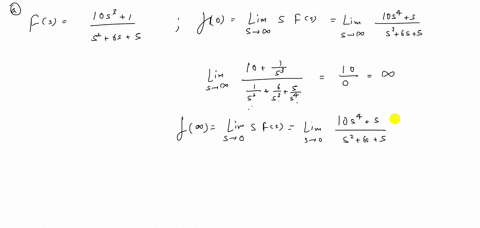 ⓐ F(s) = (10s³+1)/(s²+6s+5) ; f(0) = Lim s→∞ S F(s) = Lim s→∞ (10s⁴+s)/(s²+6s+5)
Lim s→∞ (10 + 1/s³)/(1/s² + 6/s³ + 5/s⁴) = 10/0 = ∞
f(∞) = Lim s→0 S F(s) = Lim s→0 (10s⁴+s)/(s²+6s+5)